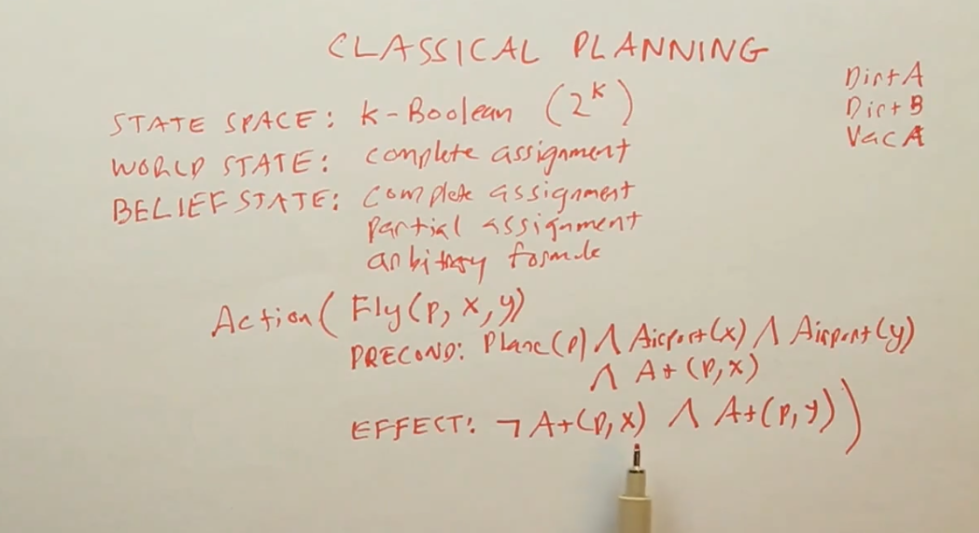 CLASSICAL PLANNING
DirtA
DirtB
VacA
STATE SPACE: k-Boolean (2^k)
WORLD STATE: complete assignment
BELIEF STATE: complete assignment
partial assignment
arbitrary formula
Action(Fly(p, x, y)
PRECOND: Plane(p) ∧ Airport(x) ∧ Airport(y)
∧ At(p,x)
EFFECT: ¬At(p,x) ∧ At(p,y))